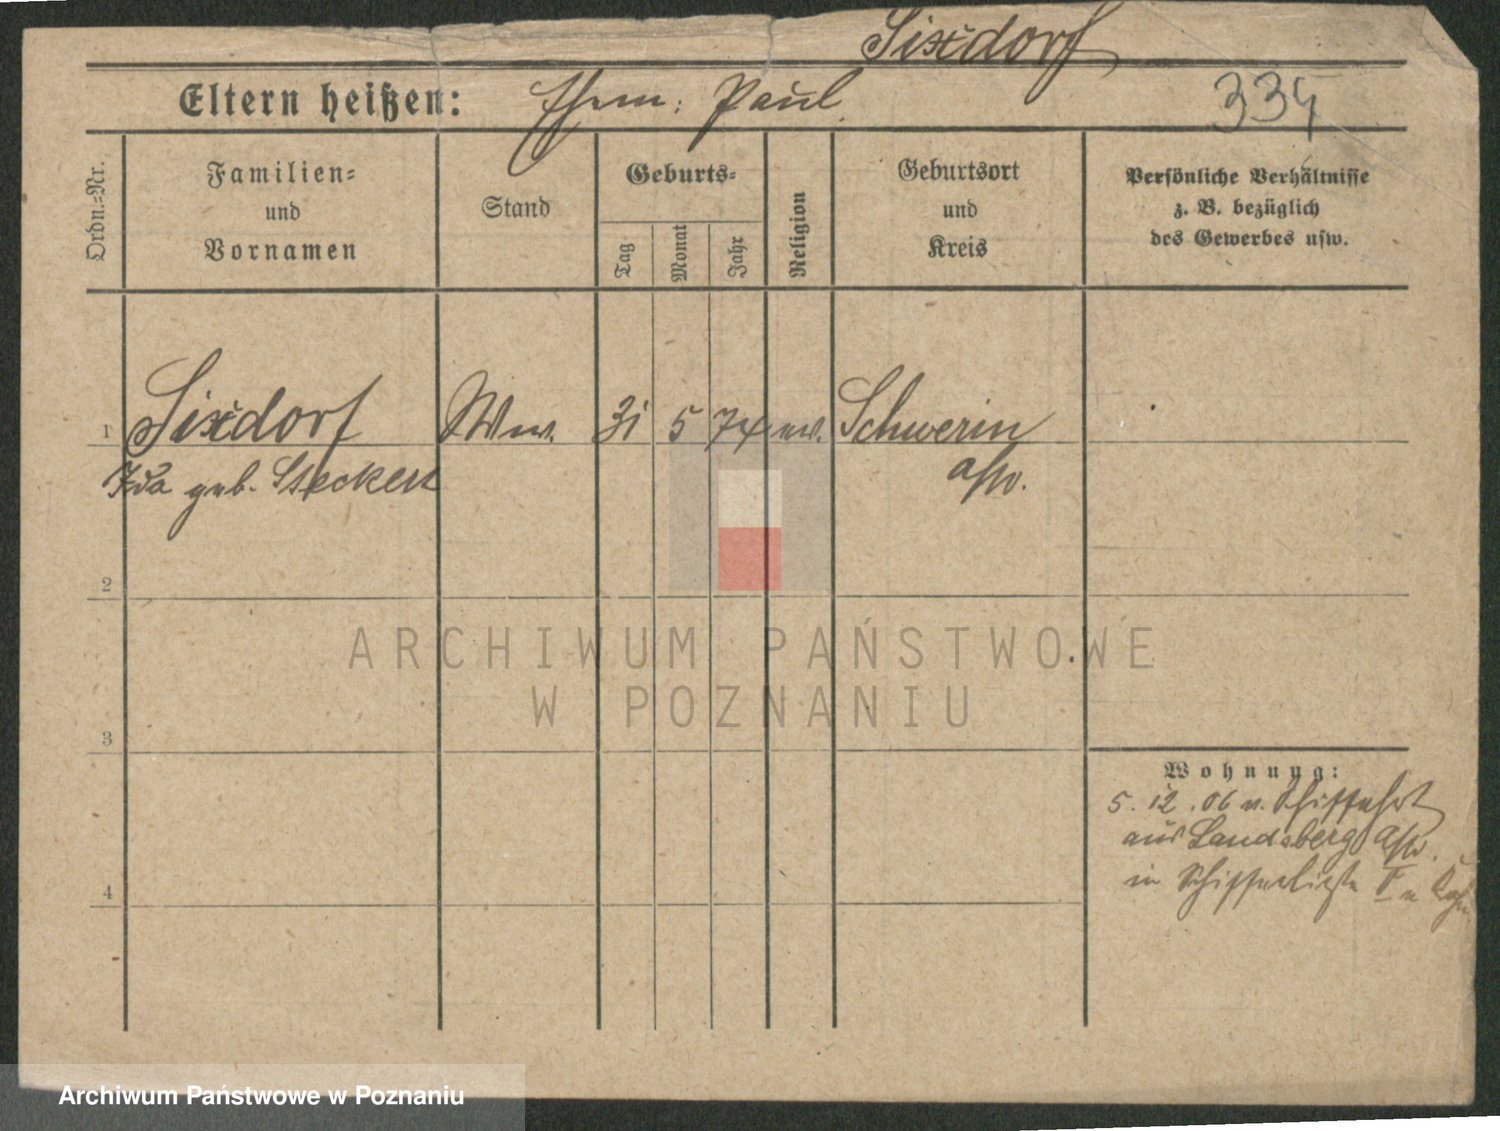 Sixdorf
Eltern heißen: Ehem: Paul
334
Ordn.-Nr.
Familien-
und
Vornamen
Stand
Geburts-
Tag
Monat
Jahr
Religion
Geburtsort
und
Kreis
Persönliche Verhältnisse
z. B. bezüglich
des Gewerbes usw.
1 Sixdorf Ww. 31 5 74 ev. Schwerin
Ida geb. Steckert a/W.
2
3
4
Wohnung:
5. 12. 06 v. Schiffahrt
aus Landsberg a/W.
in Schifferliste
ARCHIWUM PAŃSTWOWE
W POZNANIU
Archiwum Państwowe w Poznaniu